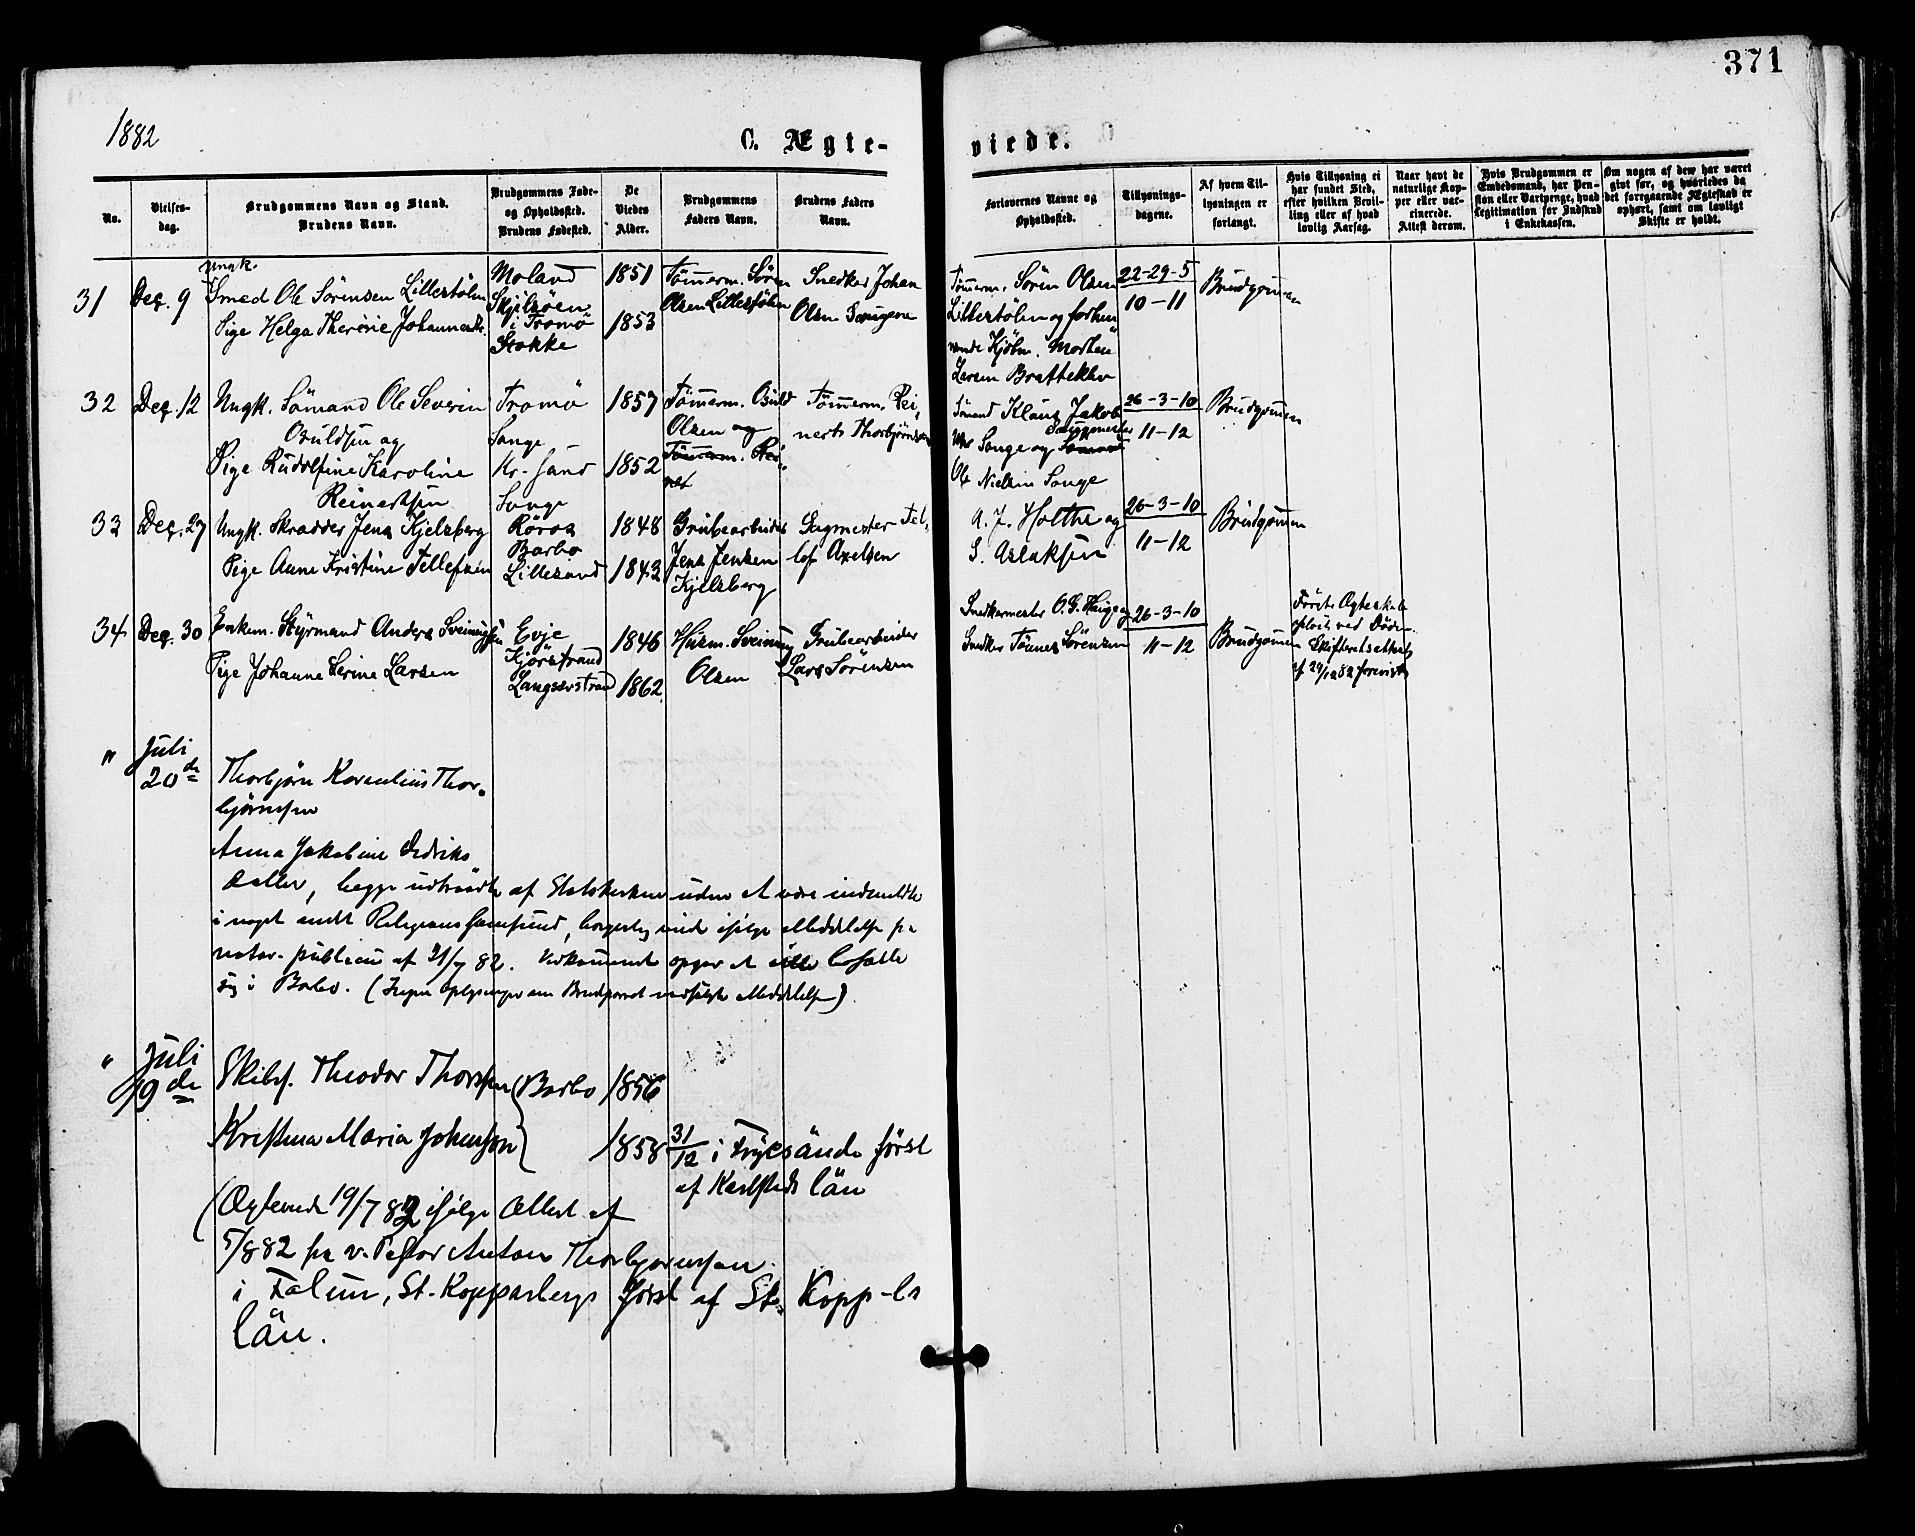 371
1882
C. Ægte- viede.
No.
Vielses-
dag.
Brudgommens Navn og Stand.
Brudens Navn.
Brudgommens Føde-
og Opholdssted.
Brudens Fødested.
De
Viedes
Alder.
Brudgommens
Faders Navn.
Brudens Faders
Navn.
Forlovernes Navne og
Opholdssted.
Tillysnings-
dagene.
Af hvem Til-
lysningen er
forlangt.
Hvis Tillysning ei
har fundet Sted,
efter hvilken Bevil-
ling eller af hvad
lovlig Aarsag.
Naar havt de
naturlige Kop-
per eller vac-
cinerede.
Attest derom.
Hvis Brudgommen er
Embedsmand, har Pen-
sion eller Vartpenge, hvad
Legitimation for Indskud
i Enkekassen.
Om nogen af dem har været
givt før, og hvorledes da
det foregaaende Ægteskab er
ophørt, samt om lovligt
Skifte er holdt.
31
Dec. 9
Ungk.
Smed Ole Sörensen Lillestölen
Pige Helga Therésie Johannesdt.
Moland
Skjilsöen
i Tromö
Stokke
1851
1853
Tömerm. Sören
Olsen Lillestölen
Snedker Johan
Olsen Saugene
Tömerm. Sören Olsen
Lillestölen og forhen
værende Kjöbm. Morten
Larsen Bratteklev
22-29-5
10-11
Brudgomen
32
Dec. 12
Ungk. Sömand Ole Severin
Osuldsen og
Pige Rudolfine Karoline
Reinertsen
Tromö
Songe
Kr.sand
Songe
1857
1852
Tömerm. Osuld
Olsen og
Tömerm. Rei-
nert
Tömerm. Rei,
nert Thorbjörnsen
Sömand Klaus Jakob
Songe og
Saugmester
Ole Nielsen Songe
26-3-10
11-12
Brudgomen
33
Dec. 27
Ungk. Skrædder Jens Kjelsberg
Pige Anne Kristine Tellefsen
Röros
Barbo
Lillesand
1848
1843
Grubearbeider
Jens Jensen
Kjelsberg
Sagmester Tel,
lef Axelsen
A. J. Holthe og
S. Aslaksen
26-3-10
11-12
Brudgomen
34
Dec. 30
Enkem. Styrmand Anders Sveinugsen
Pige Johanne Serine Larsen
Evje
Kjörstrand
Langsevstrand
1846
1862
Husm. Sveinung
Olsen
Grubearbeider
Lars Sörensen
Snedkermester O. G. Hauge og
Snedker Tönnes Sörensen
26-3-10
11-12
Brudgomen
Förste Ægteskab
oplöst ved Döden.
Skifteretsattest
af 29/12 82 forevist
"
Juli
20de
Thorbjörn Kornelius Thor-
björnsen
Anna Jakobine Didriks
datter, begge udtraadte af Statskirken uden at være indmeldte
i noget andet Religionssamfund, borgerlig viede ifölge Meddelelse fra
notar. publicus af 21/7 82. Vedkommende opgav at ville bosætte
sig i Barbo. (Ingen Oplysninger om Brudparret medfulgte Meddelelsen).
"
Juli
19de
Skibsf. Theodor Thorsen
Barbo
1856
Kristina Maria Johansson
1858 31/12 i Fryksände först
af Karlstads län
(Ægteviede 19/7 82 ifölge Attest af
5/8 82 fra v. Pastor Anton Thorbjörnsson
i Falun, St. Kopparbergs först af St. Kopp-bs
län.